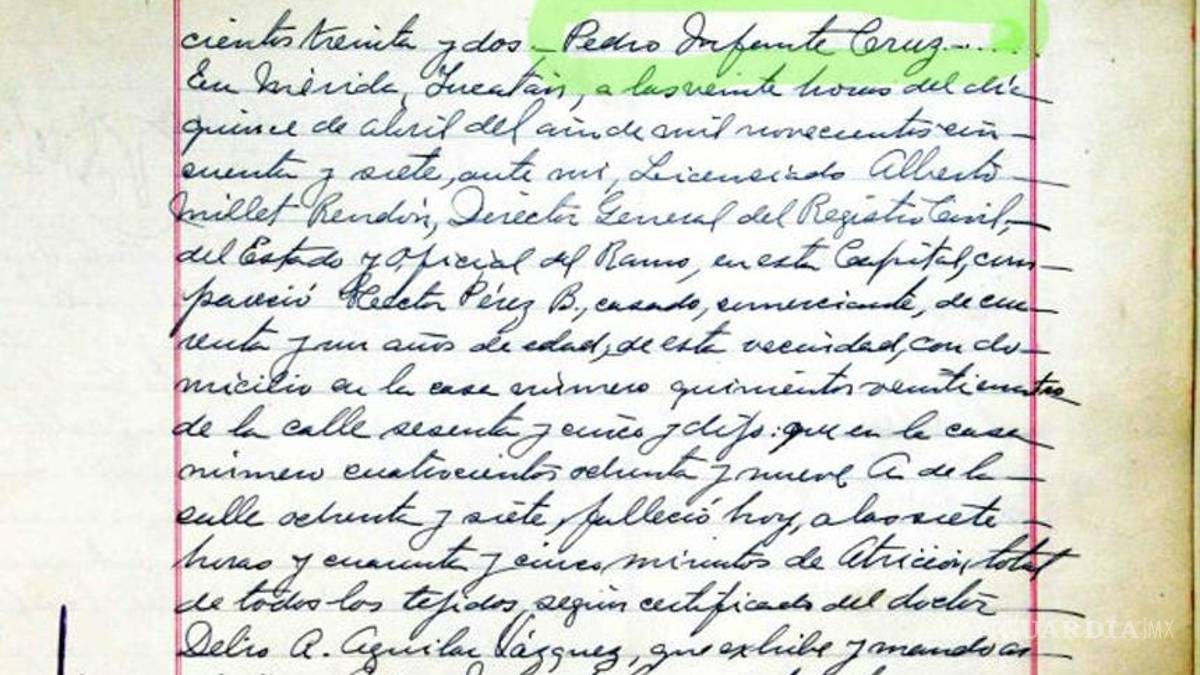 cientos treinta y dos.- Pedro Infante Cruz.....
En Mérida, Yucatán, a las veinte horas del día
quince de abril del año de mil novecientos cin-
cuenta y siete, ante mi, Licenciado Alberto
Millet Rendón, Director General del Registro Civil,
del Estado y Oficial del Ramo, en esta Capital, com-
pareció Hector Pérez B., casado, comerciante, de cua-
renta y un años de edad, de esta vecindad, con do-
micilio en la casa número quinientos veinticuatro
de la calle sesenta y cinco y dijo: que en la casa
número cuatrocientos ochenta y nueve A de la
calle ochenta y siete, falleció hoy, a las siete
horas y cuarenta y cinco minutos de Atrición total
de todos los tejidos, según certificado del doctor
Delio A. Aguilar Vázquez, que exhibe y mando
GUARDIA.MX